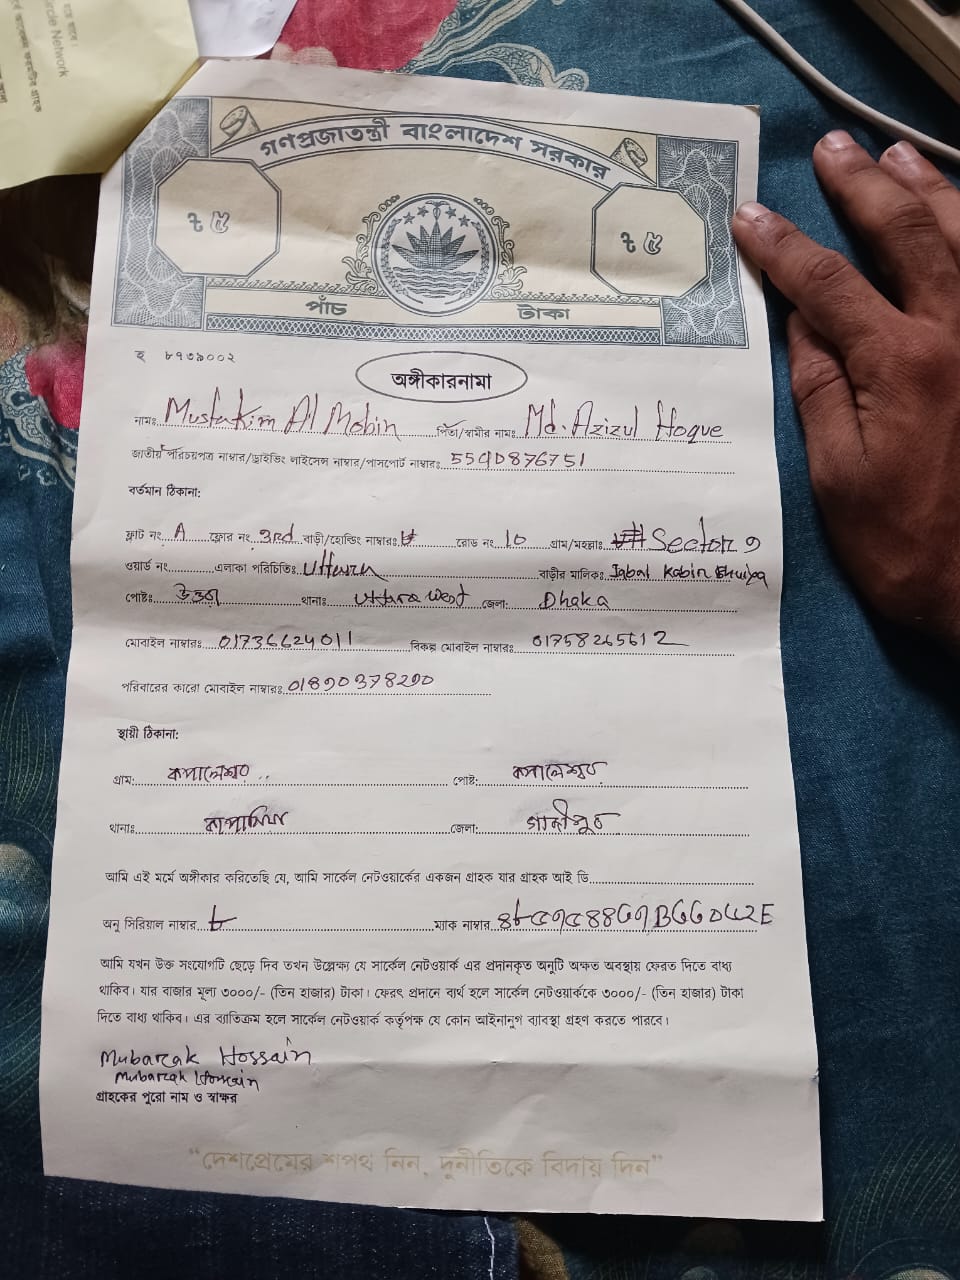 যার থাকে।
rcle Network
গণপ্রজাতন্ত্রী বাংলাদেশ সরকার
৳ ৫ ৳ ৫
পাঁচ টাকা
হ ৮৭৩৯০০২
অঙ্গীকারনামা
নামঃ Mustakim Al Mobin পিতা/স্বামীর নামঃ Md. Azizul Hoque
জাতীয় পরিচয়পত্র নাম্বার/ড্রাইভিং লাইসেন্স নাম্বার/পাসপোর্ট নাম্বারঃ 5590876751
বর্তমান ঠিকানা:
ফ্লাট নং A ফ্লোর নং 3rd বাড়ী/হোল্ডিং নাম্বারঃ রোড নং 10 গ্রাম/মহল্লাঃ Sector 9
ওয়ার্ড নং এলাকা পরিচিতিঃ Uttara বাড়ীর মালিকঃ Iqbal Kabir Bhuiya
পোষ্টঃ উত্তরা থানাঃ Uttara West জেলা: Dhaka
মোবাইল নাম্বারঃ 01736624011 বিকল্প মোবাইল নাম্বারঃ 01758265612
পরিবারের কারো মোবাইল নাম্বারঃ 01890378290
স্থায়ী ঠিকানা:
গ্রাম: কপালেশ্বর পোষ্ট: কপালেশ্বর
থানাঃ কাপাসিয়া জেলা: গাজীপুর
আমি এই মর্মে অঙ্গীকার করিতেছি যে, আমি সার্কেল নেটওয়ার্কের একজন গ্রাহক যার গ্রাহক আই ডি
অনু সিরিয়াল নাম্বার ৮ ম্যাক নাম্বার
আমি যখন উক্ত সংযোগটি ছেড়ে দিব তখন উল্লেক্ষ্য যে সার্কেল নেটওয়ার্ক এর প্রদানকৃত অনুটি অক্ষত অবস্থায় ফেরত দিতে বাধ্য
থাকিব। যার বাজার মূল্য ৩০০০/- (তিন হাজার) টাকা। ফেরৎ প্রদানে ব্যর্থ হলে সার্কেল নেটওয়ার্ককে ৩০০০/- (তিন হাজার) টাকা
দিতে বাধ্য থাকিব। এর ব্যাতিক্রম হলে সার্কেল নেটওয়ার্ক কর্তৃপক্ষ যে কোন আইনানুগ ব্যাবস্থা গ্রহণ করতে পারবে।
Mubarak Hossain
Mubarak Hossain
গ্রাহকের পুরো নাম ও স্বাক্ষর
“দেশপ্রেমের শপথ নিন, দুর্নীতিকে বিদায় দিন”